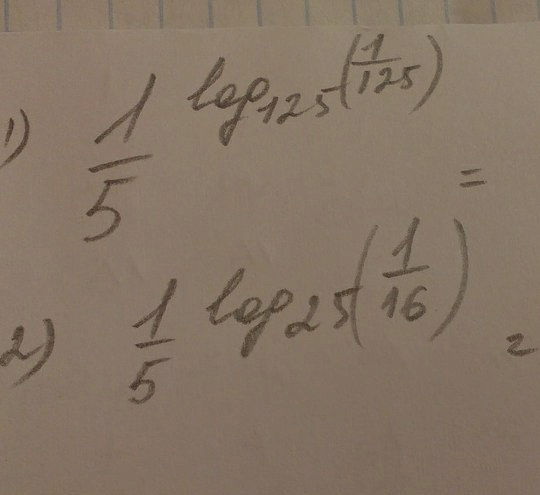 1) 1/5 log₁₂₅(1/125) =
2) 1/5 log₂₅(1/16) =